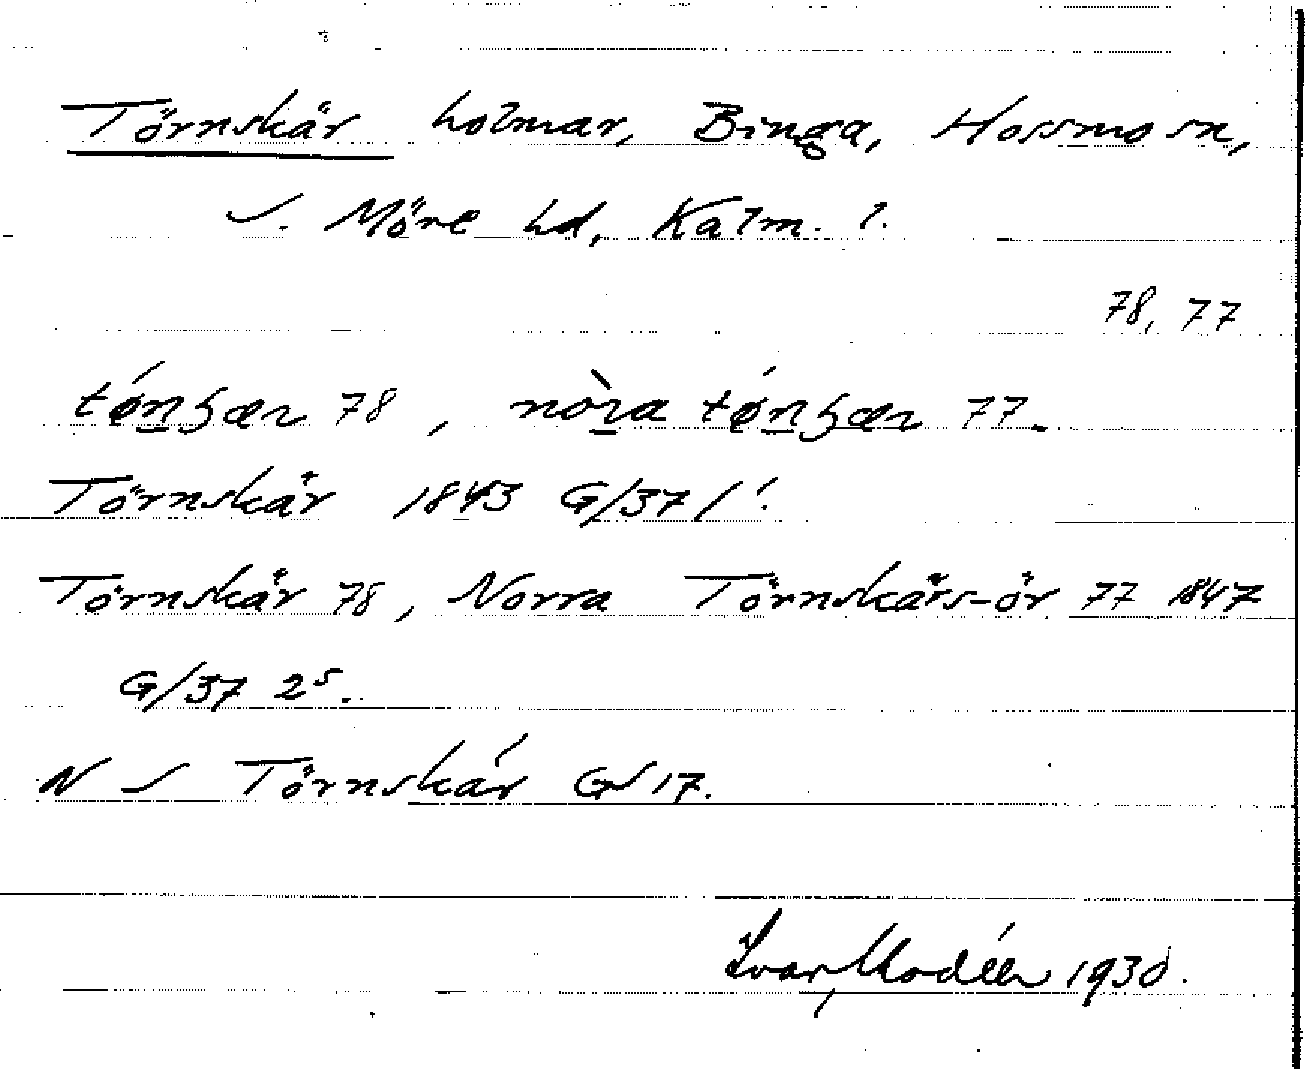 Törnskär holmar, Binga, Hossmo sn,
S. Möre hd, Kalm. l.
78, 77
Törnskär 1843 G/37 1
Törnskär 78, Norra Törnskärs-ör 77 1847
G/37 2⁵.
N S Törnskär GS 17.
Ivar Modéer 1930.